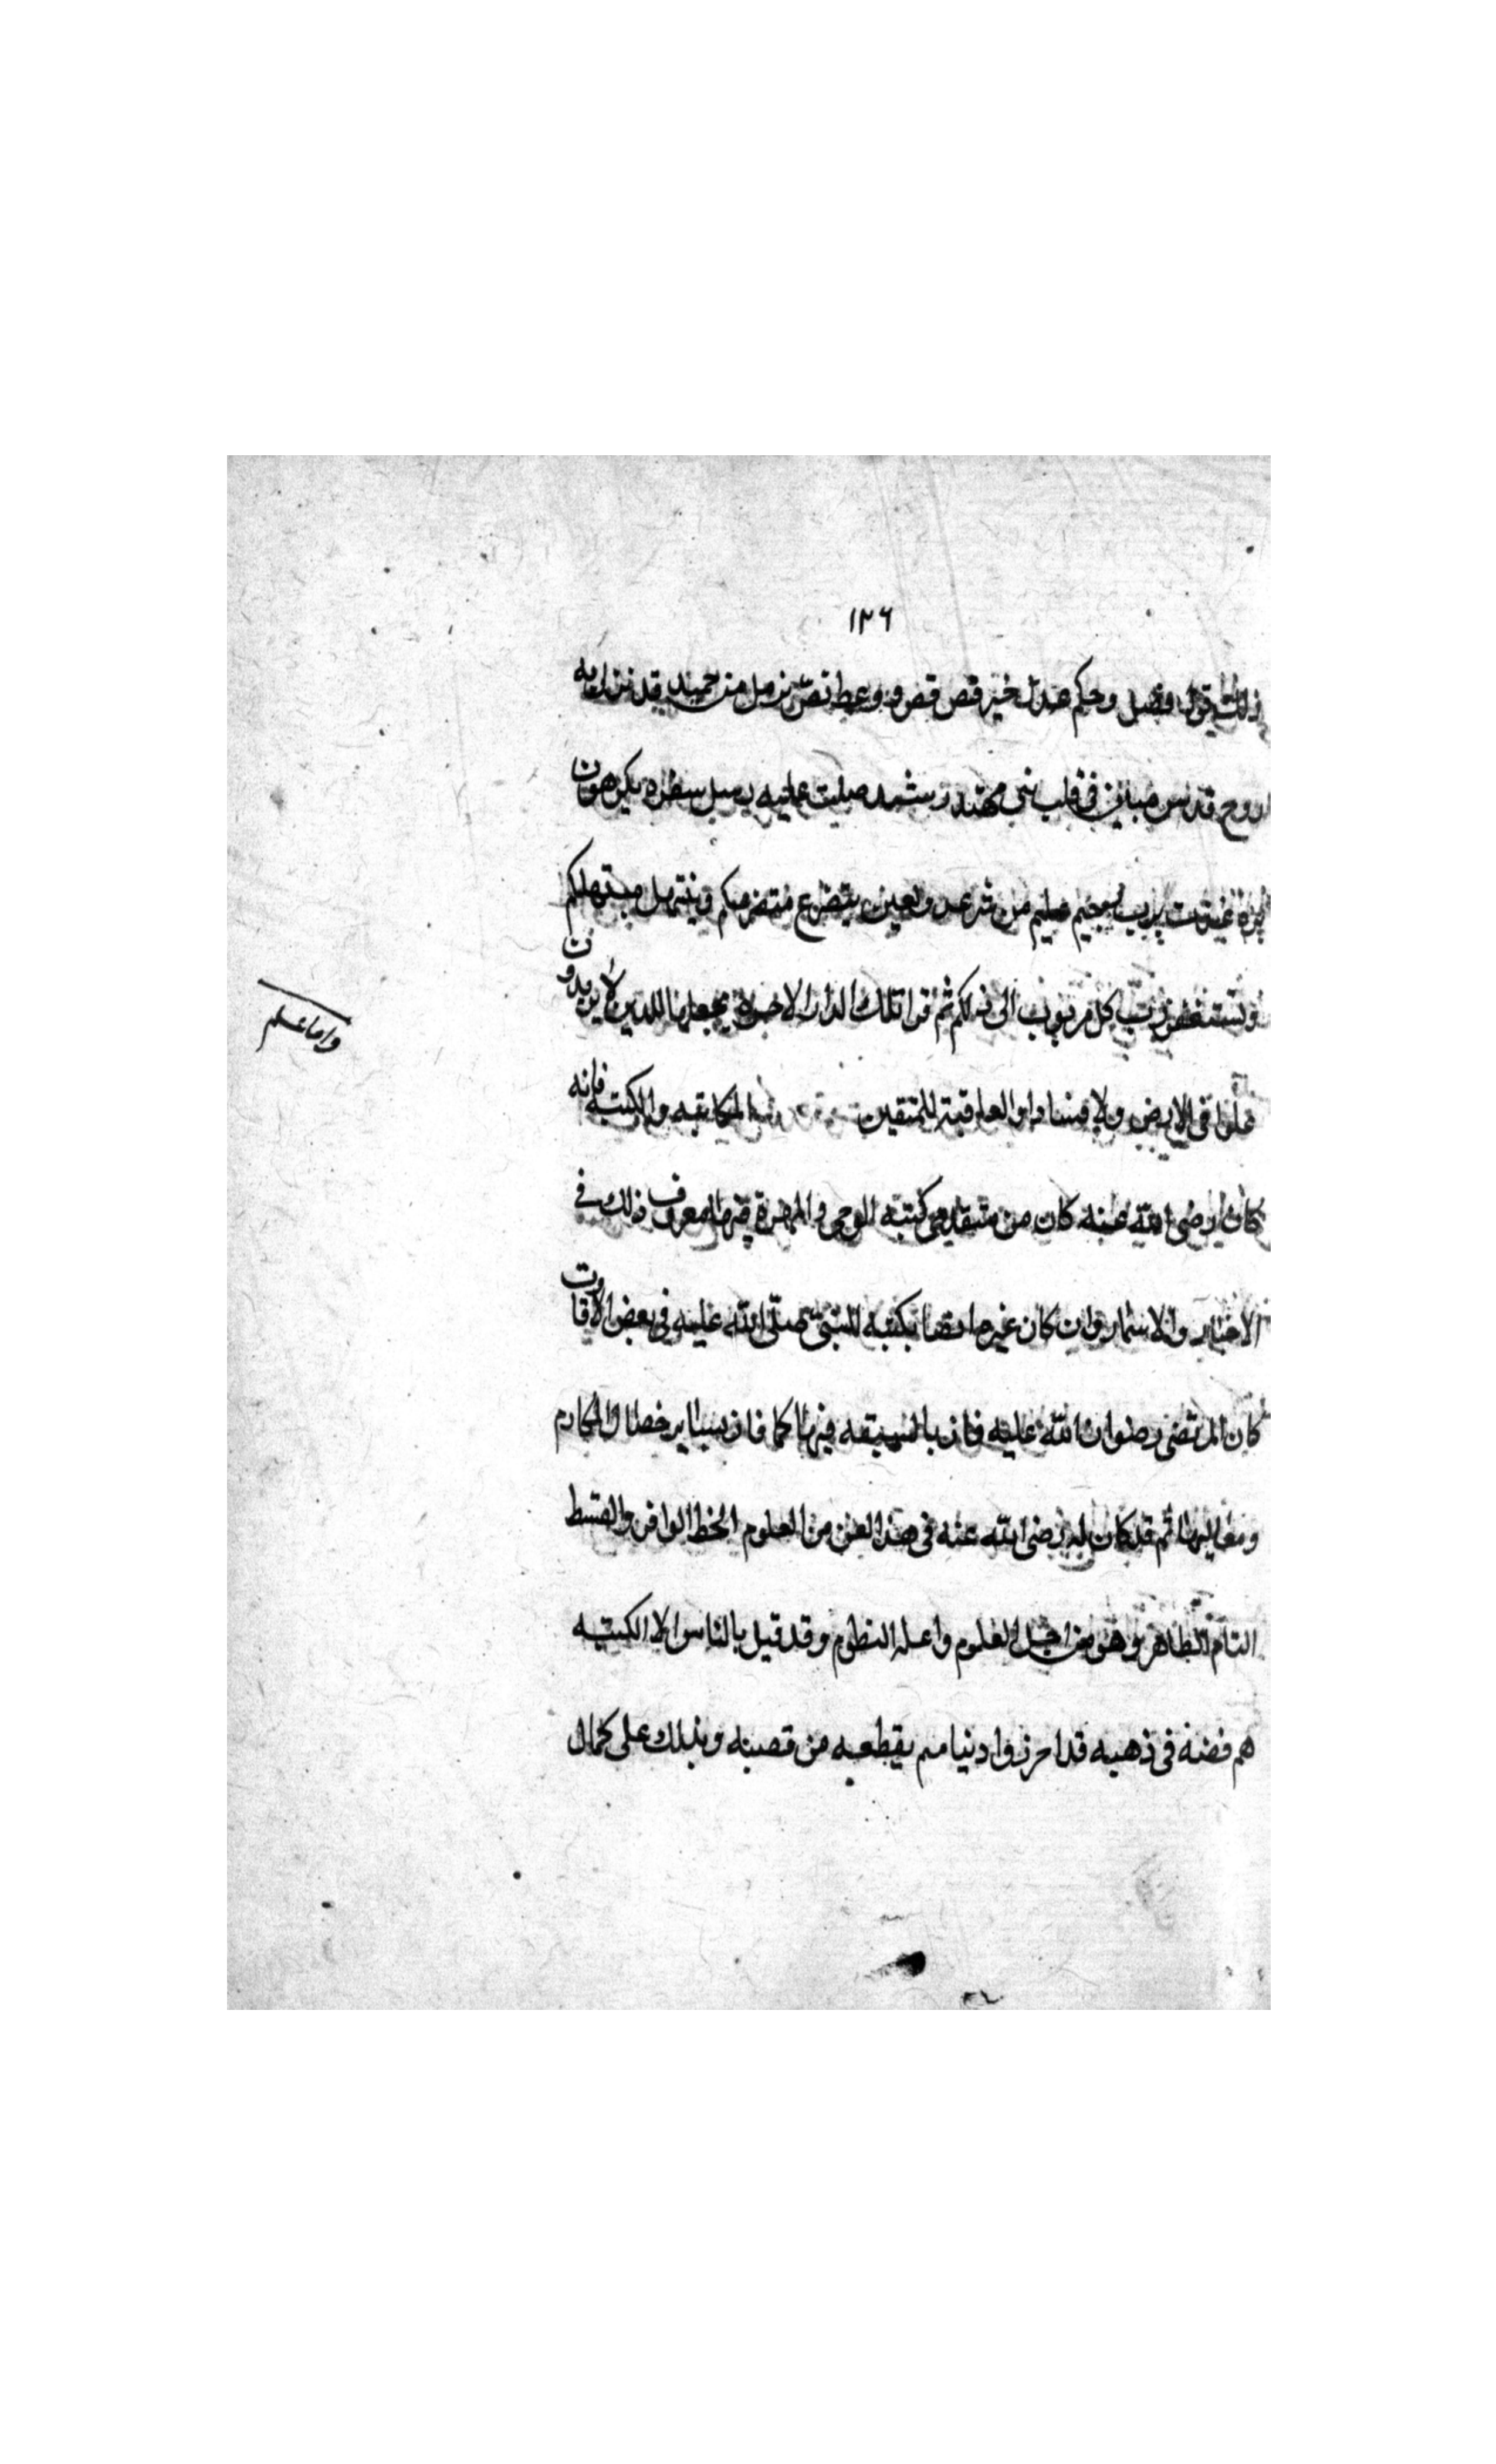 ١٢٦
ذلك قول فصل وحكم عدل خير قص قصص ووعظ نص نزمل من حميد قد نزل به
روح قدس مباين في قلب نبي مهتد رشد صليت عليه رسل سفره مكرمون
بررة عذت برب رحيم من شر كل ولعين يتضرع متضرعكم ويبتهل مبتهلكم
ونستغفر رب كل مربوب الى ذلكم ثم قرا تلك الدار الاخرة نجعلها للذين لا يريدون
علوا في الارض ولا فسادا والعاقبة للمتقين
واما علم
المكاتبه والكتبه فانه
كان رضى الله عنه كان من متقدمى كتبه الوحى والمهرة فيها المعرف ذلك فى
الاخبار والاسمار وان كان غيره ايضا يكتبه للنبى صلى الله عليه فى بعض الاقاوت
كان المرتضى رضوان الله عليه فاز بالسبقه فيها كما فاز بساير خصال المكارم
ومعاليها ثم قد كان له رضى الله عنه فى هذا الفن من العلوم الحظ الوافر والقسط
التام الظاهر وهو من اجل العلوم واعلا النظوم وقد قيل بالناس الا الكتبه
هم فضة فى ذهبه قد احرزوا دنياهم بقطعه من قصبه وبذلك على كمال